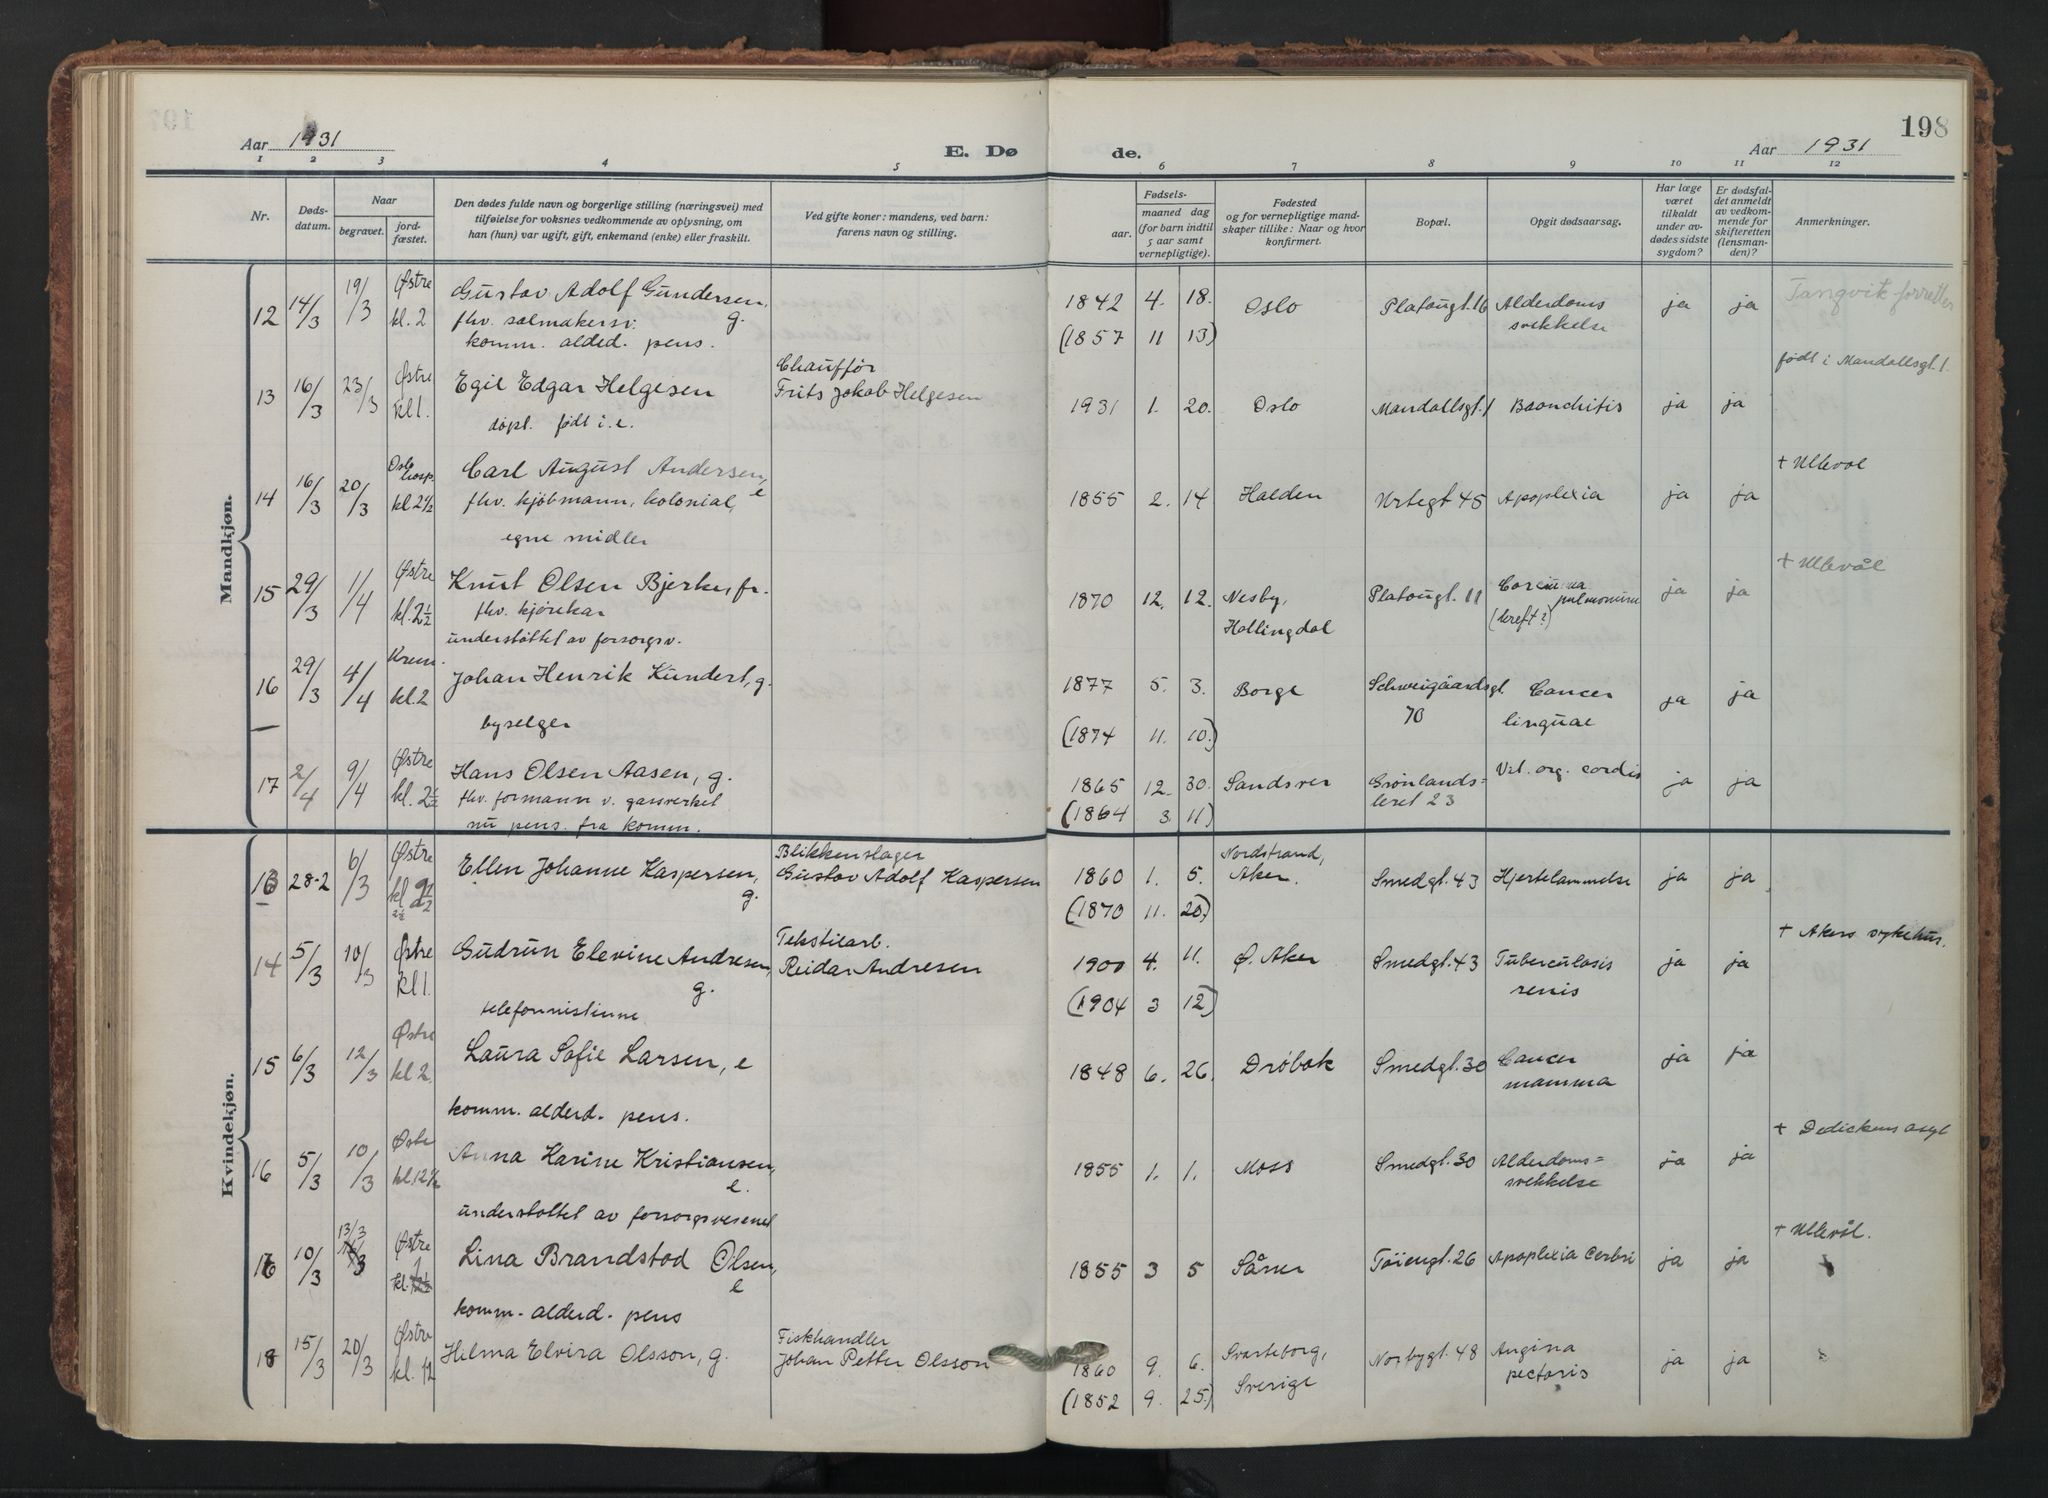 197
198
Aar 1931
E. Dø
de.
Aar 1931
1 2 3 4 5 6 7 8 9 10 11 12
Nr.
Døds-
datum.
Naar
begravet.
jord-
fæstet.
Den dødes fulde navn og borgerlige stilling (næringsvei) med
tilføielse for voksnes vedkommende av oplysning, om
han (hun) var ugift, gift, enkemand (enke) eller fraskilt.
Ved gifte koner: mandens, ved barn:
farens navn og stilling.
Fødsels-
aar.
maaned dag
(for barn indtil
5 aar samt
vernepligtige).
Fødested
og for vernepligtige mand-
skaper tillike: Naar og hvor
konfirmert.
Bopæl.
Opgit dødsaarsag.
Har læge
været
tilkaldt
under av-
dødes sidste
sygdom?
Er dødsfal-
det anmeldt
av vedkom-
mende for
skifteretten
(lensman-
den)?
Anmerkninger.
Mandkjøn.
12 14/3 19/3 Østre Gustav Adolf Gundersen, 1842 4. 18. Oslo Platougt. 16 Alderdoms ja ja Tangvik forretter
kl. 2 fhv. salmakersv. g. svekkelse
komm. alderd. pens. (1857 11 13)
13 16/3 23/3 Østre Egil Edgar Helgesen Chauffør født i Mandallsgt. 1.
kl 1. døpt. født i. e. Frits Jakob Helgesen 1931 1. 20. Oslo Mandallsgt. 1 Bronchitis ja ja
14 16/3 20/3 Oslo hosp. Carl August Andersen, e + Ulleval
kl 2½ fhv. kjøbmann, kolonial, 1855 2. 14 Halden Urtegt 45 Apoplexia ja ja
egne midler
15 29/3 1/4 Østre Knut Olsen Bjerke, fr. + Ullevål
kl. 2½ fhv. kjørekar 1870 12. 12. Nesby, Platougt. 11 ja ja
understøttet av forsorgsv. Hallingdal (kreft?)
16 29/3 4/4 Krem. Johan Henrik Kundert, g. 1877 5. 3. Borge Schweigaardsgt. Cancer ja ja
kl. 2 byselger 70 linguae
(1874 11. 10.)
17 2/4 9/4 Østre Hans Olsen Aasen, g. 1865 12. 30. Sandsver Grønlands= Vit. org. cordis ja ja
kl. 2½ fhv. formann v. gassverket leret 23
nu pens. fra komm. (1864 3. 11)
Kvindekjøn.
13 28-2 6/3 Østre Ellen Johanne Kaspersen, Blikkenslager Nordstrand,
kl 2½ g. Gustav Adolf Kaspersen 1860 1. 5. Aker. Smedgt. 43 Hjertelammelse ja ja
(1870 11. 20.)
14 5/3 10/3 Østre Gudrun Elevine Andresen, Tekstilarb. + Akers sykehus.
kl 1. g. Reidar Andresen 1900 4. 11. Ø. Aker Smedgt. 43 Tuberculosis ja ja
telefonnistinne (1904 3 12) renis
15 6/3 12/3 Østre Laura Sofie Larsen, e 1848 6. 26. Drøbak Smedgt. 30 Cancer ja ja
kl 2. komm. alderd. pens. mamma
16 5/3 10/3 Østre Anna Karine Kristiansen, + Dedichens asyl
kl. 12½ e. 1855 1. 1. Moss Smedgt. 30 Alderdoms= ja ja
understøttet av forsorgsvesenet svekkelse
17 10/3 13/3 Østre Lina Brandstad Olsen, + Ullevål.
kl. 1 e 1855 3 5 Såner Tøiengt. 26 Apoplexia Cerbri ja ja
komm. alderd. pens
18 15/3 20/3 Østre Hilma Elvira Olsson, g. Fiskhandler
kl. 12 Johan Petter Olsson 1860 9. 6. Svarteborg, Norbygt. 48 Angina ja ja
(1852 9. 25.) Sverige pectoris